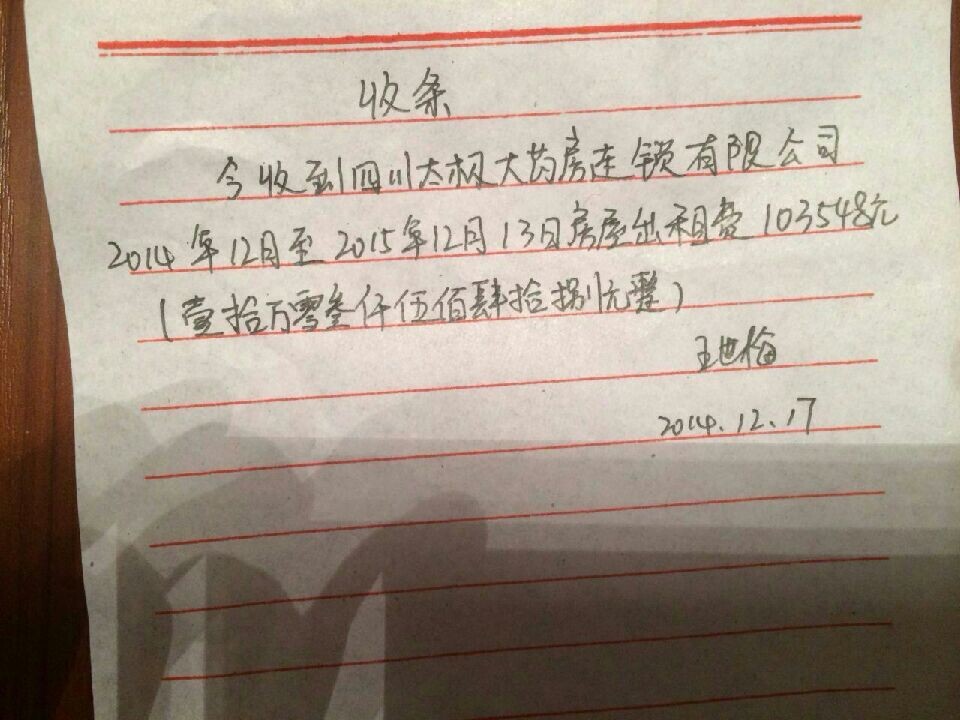 收条
今收到四川太极大药房连锁有限公司
2014年12月至2015年12月13日房屋出租费103548元
(壹拾万零叁仟伍佰肆拾捌元整)
王世
2014.12.17